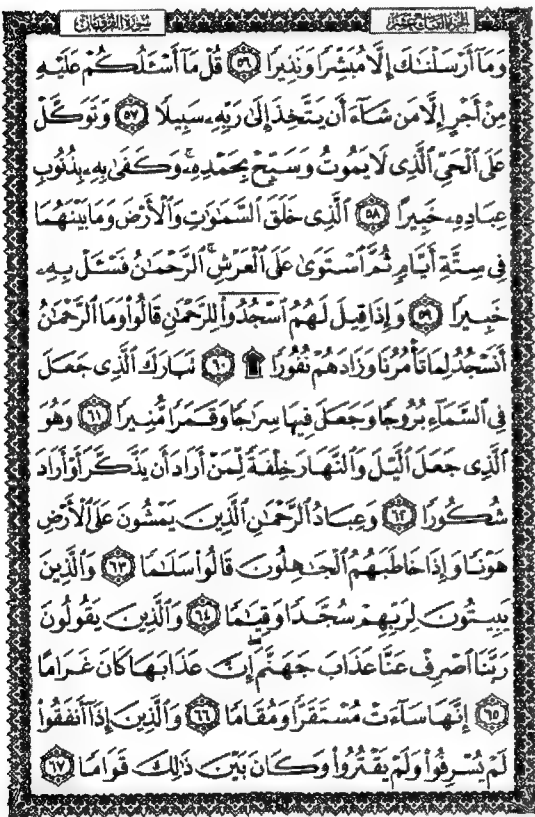 الجزء التاسع عشر
سورة الفرقان
وَمَآ أَرْسَلْنَٰكَ إِلَّا مُبَشِّرًا وَنَذِيرًا ٥٦ قُلْ مَآ أَسْـَٔلُكُمْ عَلَيْهِ
مِنْ أَجْرٍ إِلَّا مَن شَآءَ أَن يَتَّخِذَ إِلَىٰ رَبِّهِۦ سَبِيلًا ٥٧ وَتَوَكَّلْ
عَلَى ٱلْحَىِّ ٱلَّذِى لَا يَمُوتُ وَسَبِّحْ بِحَمْدِهِۦ ۚ وَكَفَىٰ بِهِۦ بِذُنُوبِ
عِبَادِهِۦ خَبِيرًا ٥٨ ٱلَّذِى خَلَقَ ٱلسَّمَٰوَٰتِ وَٱلْأَرْضَ وَمَا بَيْنَهُمَا
فِى سِتَّةِ أَيَّامٍ ثُمَّ ٱسْتَوَىٰ عَلَى ٱلْعَرْشِ ۚ ٱلرَّحْمَٰنُ فَسْـَٔلْ بِهِۦ
خَبِيرًا ٥٩ وَإِذَا قِيلَ لَهُمُ ٱسْجُدُوا۟ لِلرَّحْمَٰنِ قَالُوا۟ وَمَا ٱلرَّحْمَٰنُ
أَنَسْجُدُ لِمَا تَأْمُرُنَا وَزَادَهُمْ نُفُورًا ۩ ٦٠ تَبَارَكَ ٱلَّذِى جَعَلَ
فِى ٱلسَّمَآءِ بُرُوجًا وَجَعَلَ فِيهَا سِرَٰجًا وَقَمَرًا مُّنِيرًا ٦١ وَهُوَ
ٱلَّذِى جَعَلَ ٱلَّيْلَ وَٱلنَّهَارَ خِلْفَةً لِّمَنْ أَرَادَ أَن يَذَّكَّرَ أَوْ أَرَادَ
شُكُورًا ٦٢ وَعِبَادُ ٱلرَّحْمَٰنِ ٱلَّذِينَ يَمْشُونَ عَلَى ٱلْأَرْضِ
هَوْنًا وَإِذَا خَاطَبَهُمُ ٱلْجَٰهِلُونَ قَالُوا۟ سَلَٰمًا ٦٣ وَٱلَّذِينَ
يَبِيتُونَ لِرَبِّهِمْ سُجَّدًا وَقِيَٰمًا ٦٤ وَٱلَّذِينَ يَقُولُونَ
رَبَّنَا ٱصْرِفْ عَنَّا عَذَابَ جَهَنَّمَ ۖ إِنَّ عَذَابَهَا كَانَ غَرَامًا
٦٥ إِنَّهَا سَآءَتْ مُسْتَقَرًّا وَمُقَامًا ٦٦ وَٱلَّذِينَ إِذَآ أَنفَقُوا۟
لَمْ يُسْرِفُوا۟ وَلَمْ يَقْتُرُوا۟ وَكَانَ بَيْنَ ذَٰلِكَ قَوَامًا ٦٧